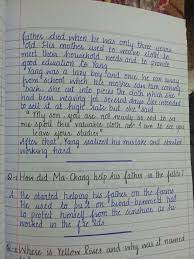 father died when he was only three years
old. His mother used to weave cloth to
meet their household needs and to provide
good education to Yang
Yang was a lazy boy and once he ran away
from school which his mother saw him coming
back. She cut into pieces the cloth which she
had been weaving for several days. She intended
to sell it at high rate but she said
"My son, you are not nearly as sad to see
me spoil this valuable cloth as I am to see you
leave your studies"
After that Yang realized his mistake and started
working hard
Q.1 How did Ma-Chang help his father in the fields?
A. He started helping his father on the farms
He used to put on broad-brimmed hat
to protect himself from the sunshine as he
worked in the fields
Q.2 Where is Yellow River and why was it named